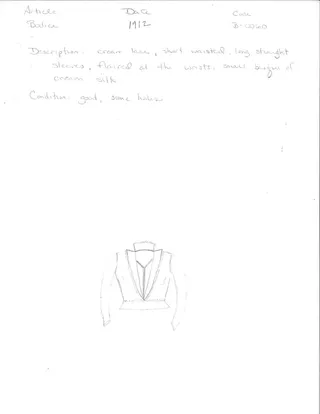 Article Date Code
Bodice 1912 B-
Description: cream lace, short waisted, long straight
sleeves, flaired at the wrists, small
cream silk
Condition: good, some holes